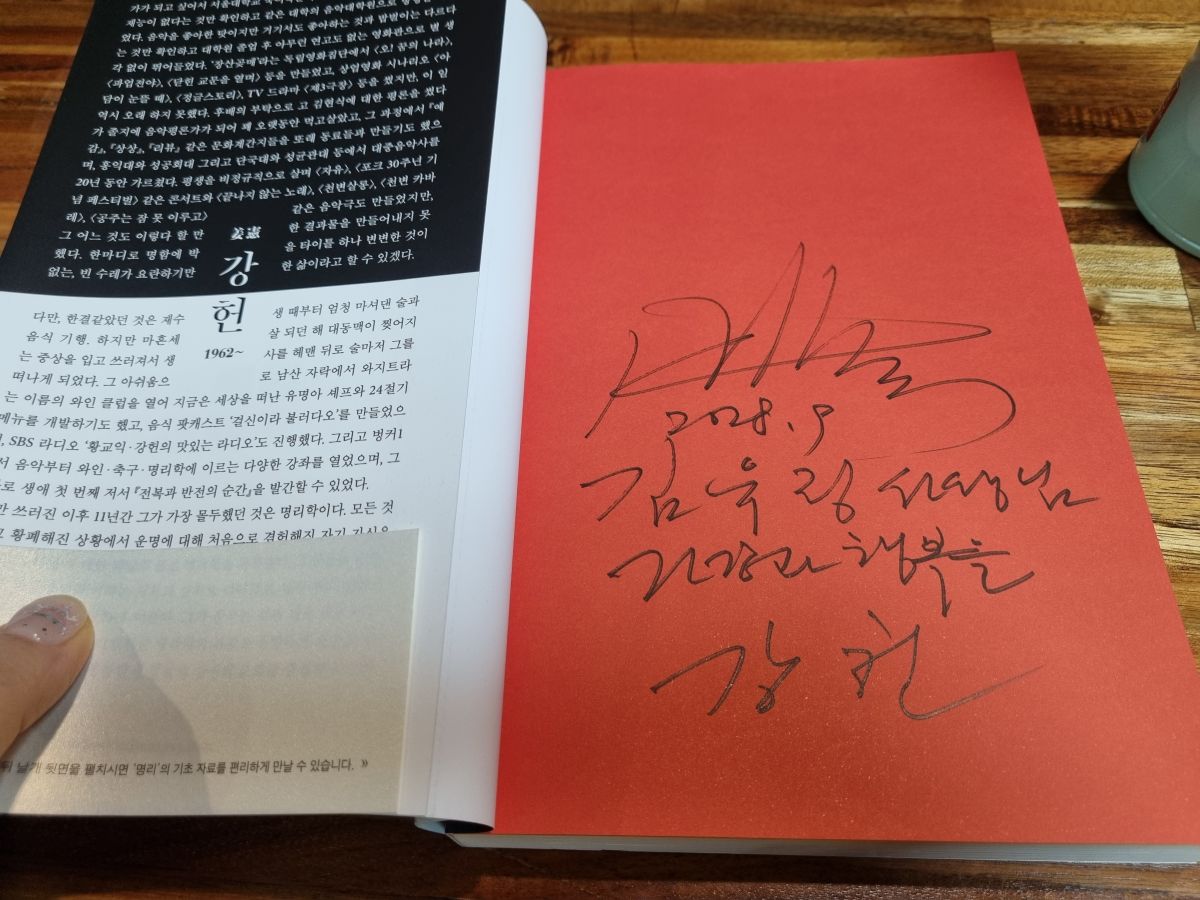 가가 되고 싶어서 서울대학교
재능이 없다는 것만 확인하고 같은 대학의 음악대학원으로
었다. 음악을 좋아한 탓이지만 거기서도 좋아하는 것과 밥벌이는 다르다
는 것만 확인하고 대학원 졸업 후 아무런 연고도 없는 영화판으로 별 생
각 없이 뛰어들었다. '장산곶매'라는 독립영화집단에서 〈오! 꿈의 나라〉,
〈파업전야〉, 〈닫힌 교문을 열며〉 등을 만들었고, 상업영화 시나리오 〈아
담이 눈뜰 때〉, 〈정글스토리〉, TV 드라마 〈제3극장〉 등을 썼지만, 이 일
역시 오래 하지 못했다. 후배의 부탁으로 고 김현식에 대한 평론을 썼다
가 졸지에 음악평론가가 되어 꽤 오랫동안 먹고살았고, 그 과정에서 『예
감』, 『상상』, 『리뷰』 같은 문화계간지들을 또래 동료들과 만들기도 했으
며, 홍익대와 성공회대 그리고 단국대와 성균관대 등에서 대중음악사를
20년 동안 가르쳤다. 평생을 비정규직으로 살며 〈자유〉, 〈포크 30주년 기
념 페스티벌〉 같은 콘서트와 〈끝나지 않는 노래〉, 〈천변살롱〉, 〈천변 카바
레〉, 〈공주는 잠 못 이루고〉 같은 음악극도 만들었지만,
그 어느 것도 이렇다 할 만한 결과물을 만들어내지 못
했다. 한마디로 명함에 박을 타이틀 하나 변변한 것이
없는, 빈 수레가 요란하기만 한 삶이라고 할 수 있겠다.
姜憲
강
헌
1962~
다만, 한결같았던 것은 재수생 때부터 엄청 마셔댄 술과
음식 기행. 하지만 마흔세 살 되던 해 대동맥이 찢어지
는 중상을 입고 쓰러져서 생사를 헤맨 뒤로 술마저 그를
떠나게 되었다. 그 아쉬움으로 남산 자락에서 와지트라
는 이름의 와인 클럽을 열어 지금은 세상을 떠난 유명아 셰프와 24절기
메뉴를 개발하기도 했고, 음식 팟캐스트 '걸신이라 불러다오'를 만들었으
며, SBS 라디오 '황교익·강헌의 맛있는 라디오'도 진행했다. 그리고 벙커1
에서 음악부터 와인·축구·명리학에 이르는 다양한 강좌를 열었으며, 그
로 생애 첫 번째 저서 『전복과 반전의 순간』을 발간할 수 있었다.
쓰러진 이후 11년간 그가 가장 몰두했던 것은 명리학이다. 모든 것
황폐해진 상황에서 운명에 대해 처음으로 겸허해진 자기 가신을
뒤 날개 뒷면을 펼치시면 '명리'의 기초 자료를 편리하게 만날 수 있습니다. »
김욱정 선생님
건강과 행복을
강헌